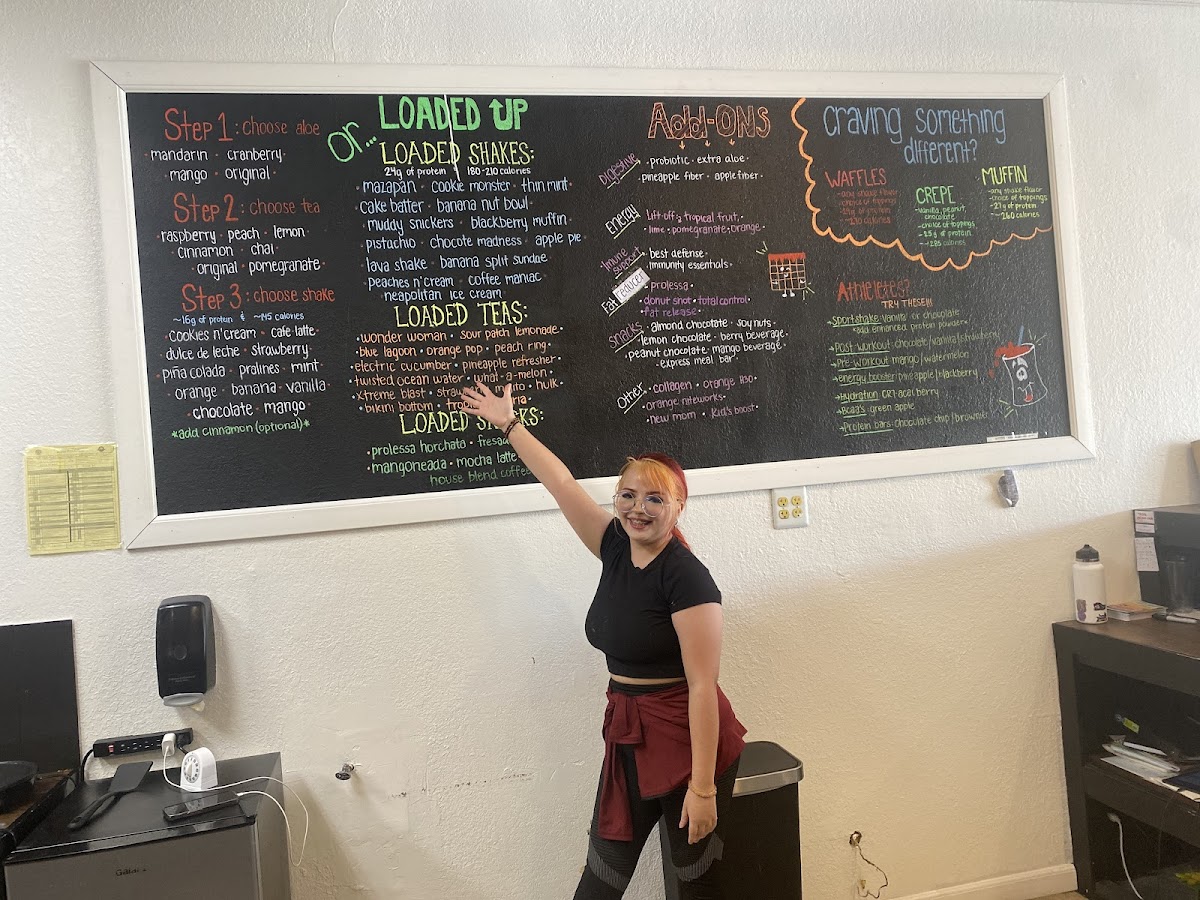 Step 1: choose aloe
mandarin • cranberry
mango • original
Step 2: choose tea
raspberry • peach • lemon
cinnamon • chai
original • pomegranate
Step 3: choose shake
~16g of protein & ~145 calories
cookies n'cream • cafe latte
dulce de leche • strawberry
piña colada • pralines • mint
orange • banana • vanilla
chocolate • mango
*add cinnamon (optional)*
Or...
LOADED UP
LOADED SHAKES:
24g of protein 180-210 calories
mazapan • cookie monster • thin mint
cake batter • banana nut bowl
muddy snickers • blackberry muffin
pistachio • chocote madness • apple pie
lava shake • banana split sundae
peaches n'cream • coffee maniac
neapolitan ice cream
LOADED TEAS:
wonder woman • sour patch lemonade
blue lagoon • orange pop • peach ring
electric cucumber • pineapple refresher
twisted ocean water • what-a-melon
xtreme blast • hulk
bikini bottom
LOADED
prolessa horchata
mangoneada • mocha latte
house blend coffee
Add-ONS
Digestive
probiotic • extra aloe
pineapple fiber • apple fiber
energy
Lift-off: tropical fruit
lime • pomegranate • orange
Imune support
best defense
immunity essentials
Fat reducer
prolessa
donut shot • total control
fat release
snacks
almond chocolate • soy nuts
lemon chocolate • berry beverage
peanut chocolate • mango beverage
express meal bar
Other
collagen • orange H30
orange niteworks
new mom • kid's boost
craving something
different?
WAFFLES
any shake flavor
choice of toppings
CREPE
vanilla, peanut,
chocolate
choice of toppings
25g of protein
~285 calories
MUFFIN
any shake flavor
choice of toppings
27g of protein
~260 calories
Athletetes?
TRY THESE!!!
sportshake: vanilla or chocolate
*add enhanced protein powder
Post workout: chocolate/vanilla/strawberry
Pre-workout: mango/watermelon
energy booster: pineapple/blackberry
Hydration CR7: acai berry
BCAA's: green apple
Protein bars: chocolate chip/brownie